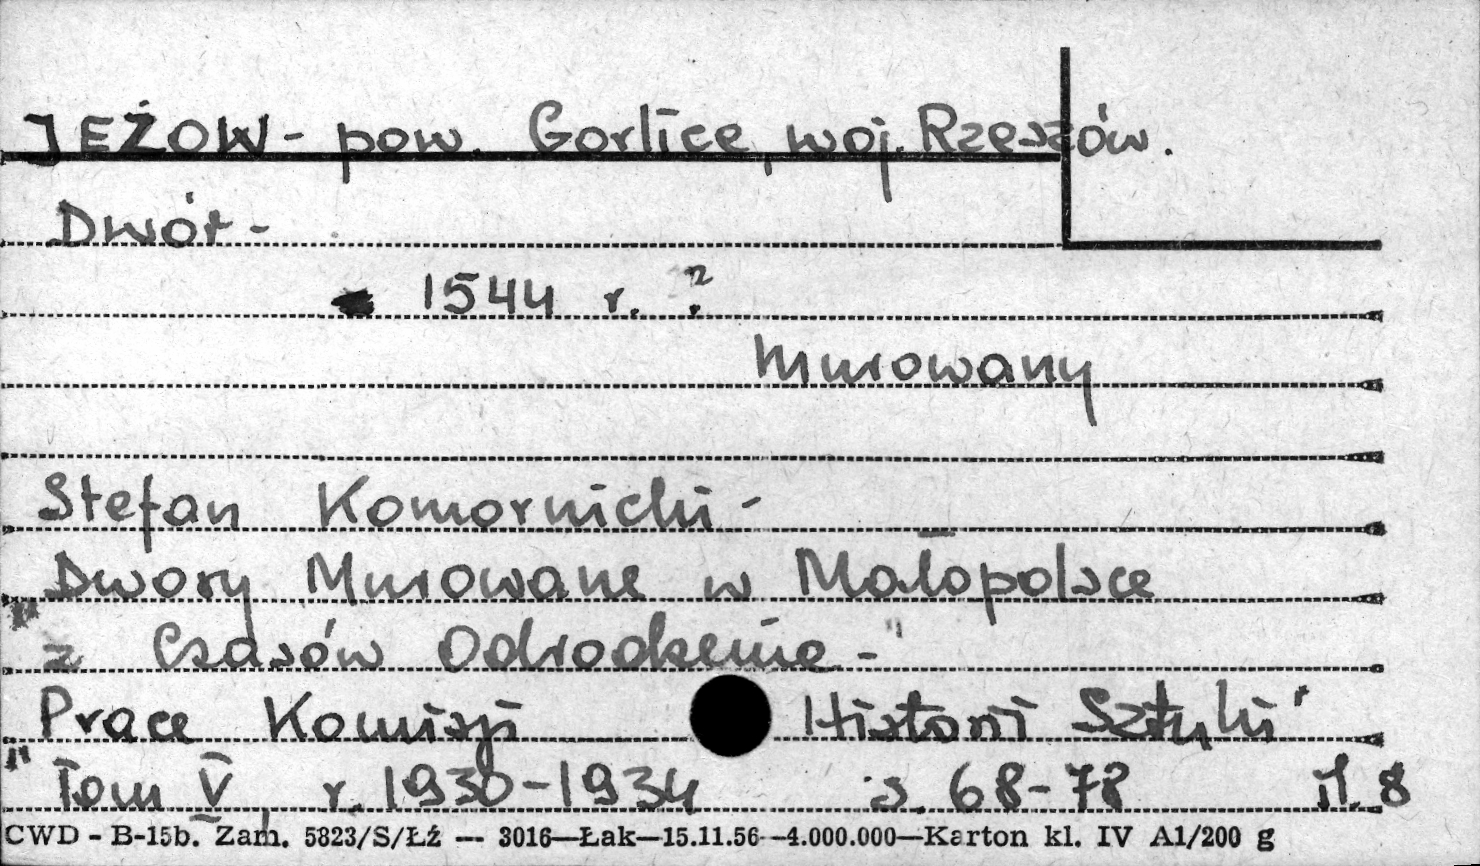 JEŻOW - pow. Gorlice, woj. Rzeszów.
Dwór -
1544 r. ?
Murowany
Stefan Komornicki -
"Dwory Murowane w Małopolsce
z Czasów Odrodzenia - "
Prace Komisji Historii Sztuki"
"Tom V r. 1930-1934 s. 68-78 il. 8
CWD - B-15b. Zam. 5823/S/Łź --- 3016—Łak—15.11.56--4.000.000—Karton kl. IV A1/200 g